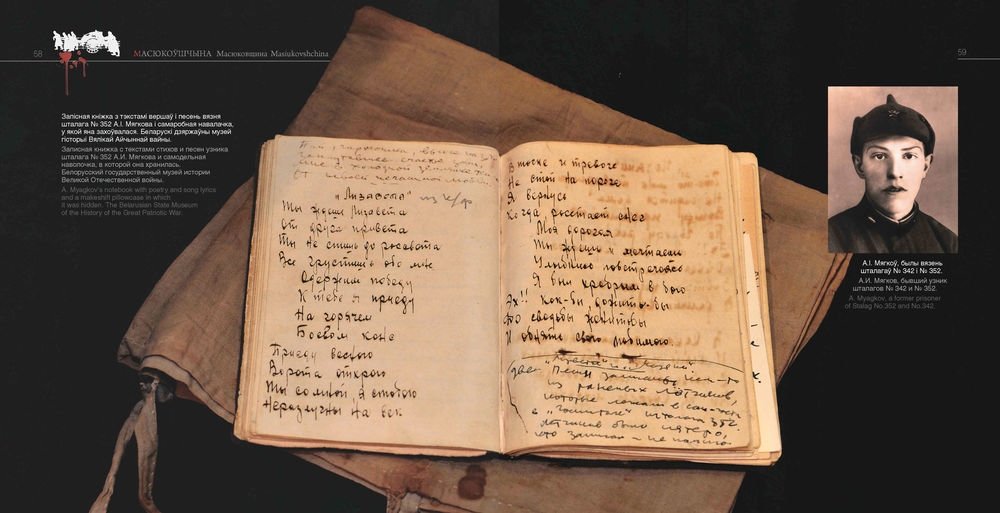 58
МАСЮКОЎШЧЫНА Масюковщина Masiukovshchina
Запісная кніжка з тэкстамі вершаў і песень вязня
шталага № 352 А.І. Мягкова і самаробная навалачка,
у якой яна захоўвалася. Беларускі дзяржаўны музей
гісторыі Вялікай Айчыннай вайны.
Записная книжка с текстами стихов и песен узника
шталага № 352 А.И. Мягкова и самодельная
наволочка, в которой она хранилась.
Белорусский государственный музей истории
Великой Отечественной войны.
A. Myagkov's notebook with poetry and song lyrics
and a makeshift pillowcase in which
it was hidden. The Belarusian State Museum
of the History of the Great Patriotic War.
„Лизавета" из к/ф
Ты ждешь Лизавета
От друга привета
Ты не спишь до рассвета
Все грустишь обо мне
Одержим победу
К тебе я приеду
На горячем
Боевом коне
Приеду весною
Ворота открою
Ты со мной, я с тобою
Неразлучны на век
В тоске и тревоге
Не стой на пороге
Я вернусь
Когда растает снег
Моя дорогая
Ты ждешь и мечтаешь
Улыбкою повстречаешь
Я был храбрым в бою
Эх!! как-бы дожить-бы
До свадьбы женитьбы
И обнять свою любимую.
Песни
из раненых лётчиков,
которые лежали в
шталага 352.
59
А.І. Мягкоў, былы вязень
шталагаў № 342 і № 352.
А.И. Мягков, бывший узник
шталагов № 342 и № 352.
A. Myagkov, a former prisoner
of Stalag No.352 and No.342.